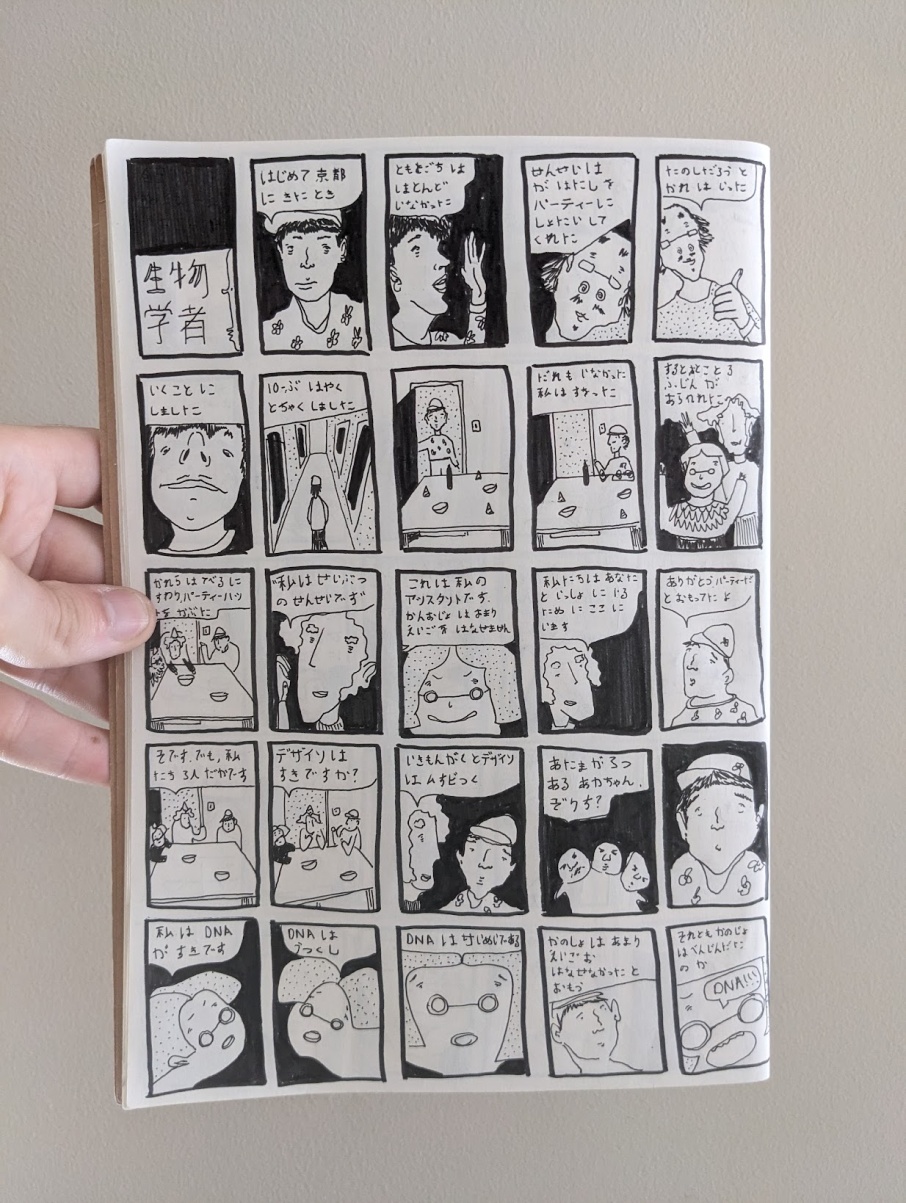 生物
学者
はじめて京都
に きた とき
ともだち は
ほとんど
いなかった
せんせい は
が はたし を
パーティーに
しょたい して
くれた
たのしだろう と
かれ は いった
いくこと に
しました
10っぷ はやく
とちゃく しました
だれも いなかった
私は すわった
ふじん が
あらわれた
かれら は てぶる に
すわり,パーティーハッ
かぶた
"私は せいぶつ
の せんせいです"
これは 私の
アシスタントです.
かんおじょ は あまり
えいごを はなせません
私たちは あなた
と いっしょ に いる
ため に ここ に
います
ありがとう パーティーだ
と おもってた よ
そです.でも,私
たち 3人 だかです
デザイン は
すきですか?
いきもんがく とデザイン
は ムすビっく
あたまが ろつ
ある あかちゃん.
ぞクす?
私 は DNA
が すきです
DNA は
うつくし
DNA は せいめいである
かのしょ は あまり
えいご お
はなせなかった と
おもう
それとも かのじょ
はへんじんだた
の か
DNA!!!